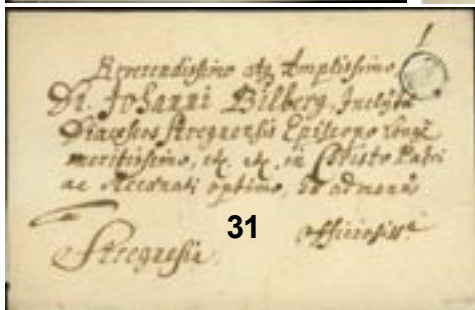 Reverendissimo atq Amplissimo
Dn. Johanni Bilberg, Inclytæ
Diæceseos Stregnensis Episcopo longe
meritissimo, etc. etc. in Christo Patri
ac Mecænati optimo, ad manus
31
officiosiss.
Stregnesiæ.